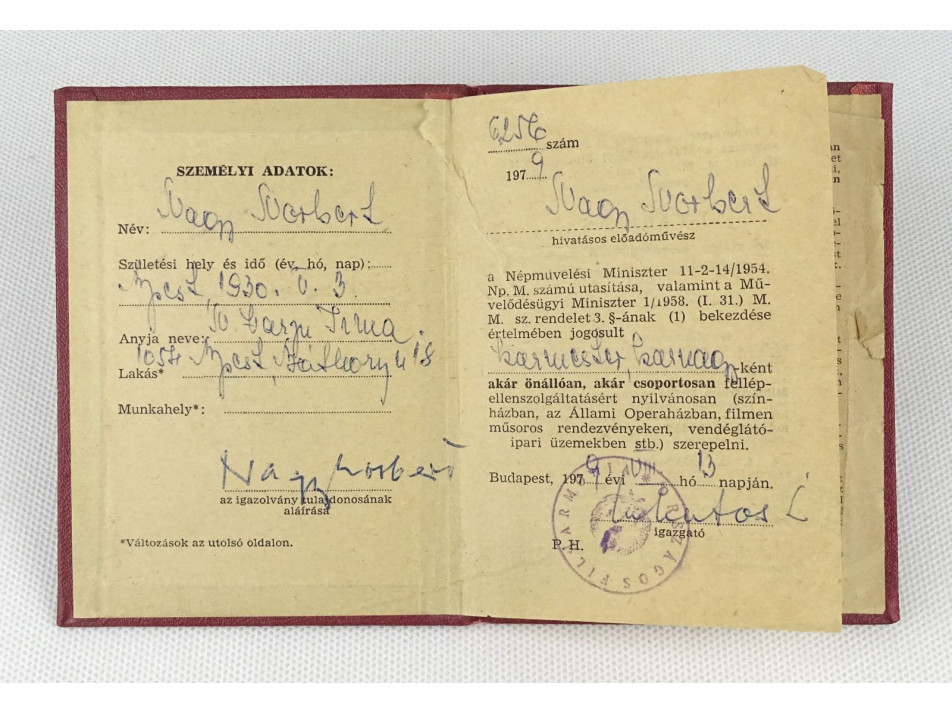 SZEMÉLYI ADATOK:
Név: Nagy Norbert
Születési hely és idő (év, hó, nap):
Bpest, 1930. V. 3.
Anyja neve: Irma
Lakás* 1054 Bpest, Báthory u 18
Munkahely*:
Nagy Norbert
az igazolvány tulajdonosának
aláírása
*Változások az utolsó oldalon.
6256 szám
1979
Nagy Norbert
hivatásos előadóművész
a Népművelési Miniszter 11-2-14/1954.
Np. M. számú utasítása, valamint a Mű-
velődésügyi Miniszter 1/1958. (I. 31.) M.
M. sz. rendelet 3. §-ának (1) bekezdése
értelmében jogosult
karmester, karnagy-ként
akár önállóan, akár csoportosan fellép-
ellenszolgáltatásért nyilvánosan (szín-
házban, az Állami Operaházban, filmen
műsoros rendezvényeken, vendéglátó-
ipari üzemekben stb.) szerepelni.
Budapest, 1979 évi VIII. hó 13 napján.
igazgató
P. H.
ORSZÁGOS FILHARMÓNIA